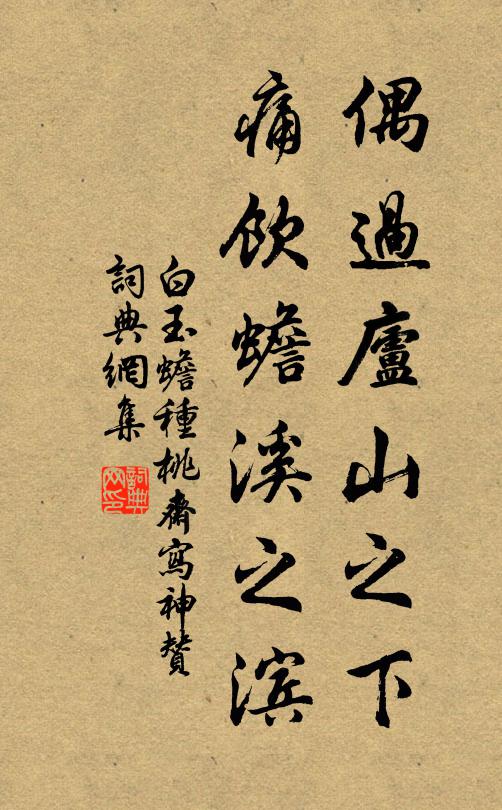 偶過廬山之下
痛飲蟾溪之滨
白玉蟾種桃齋寫神贊
詞典網集
詞典
网印